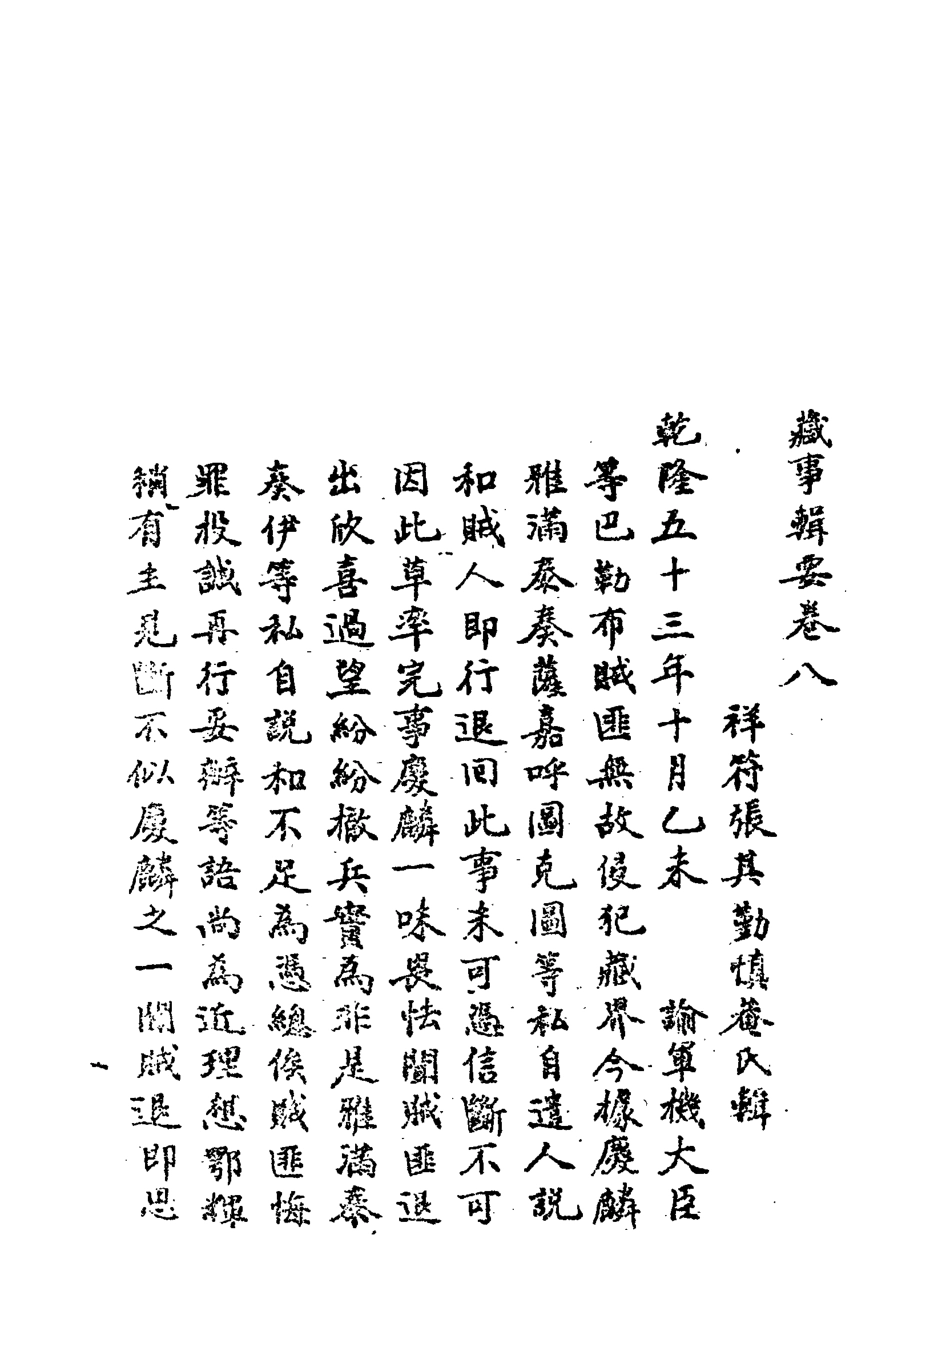 藏事輯要卷八
祥符張其勤慎菴氏輯
乾隆五十三年十月乙未　諭軍機大臣
等巴勒布賊匪無故侵犯藏界今據慶麟
雅滿泰奏薩嘉呼圖克圖等私自遣人説
和賊人即行退回此事未可憑信斷不可
因此草率完事慶麟一味畏怯聞賊匪退
出欣喜過望紛紛撤兵實為非是雅滿泰
奏伊等私自説和不足為憑總俟賊匪悔
罪投誠再行妥辦等語尚為近理想鄂輝
稍有主見斷不似慶麟之一聞賊退即思